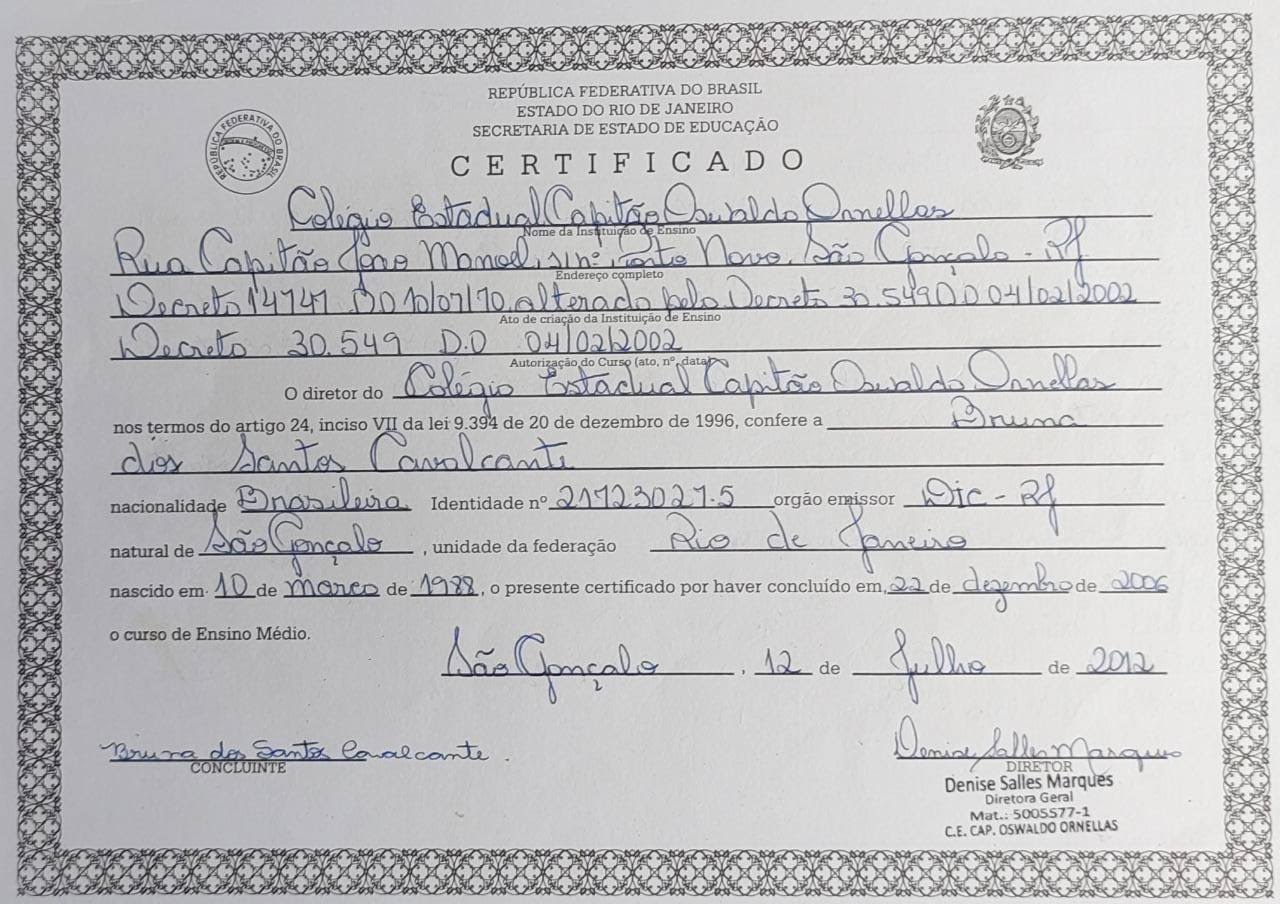 REPÚBLICA FEDERATIVA DO BRASIL
ESTADO DO RIO DE JANEIRO
SECRETARIA DE ESTADO DE EDUCAÇÃO
REPÚBLICA FEDERATIVA DO BRASIL
CERTIFICADO
Colégio Estadual Capitão Oswaldo Ornellas
Nome da Instituição de Ensino
Rua Capitão João Manoel, s/nº, Porto Novo, São Gonçalo - RJ
Endereço completo
Decreto 14741 DO 10/07/70, alterado pelo Decreto 30.549 D.O 04/02/2002
Ato de criação da Instituição de Ensino
Decreto 30.549 D.O 04/02/2002
Autorização do Curso (ato, nº, data)
O diretor do Colégio Estadual Capitão Oswaldo Ornellas
nos termos do artigo 24, inciso VII da lei 9.394 de 20 de dezembro de 1996, confere a Bruna
dos Santos Cavalcante
nacionalidade Brasileira Identidade nº 21723027-5 orgão emissor Dic - RJ
natural de São Gonçalo, unidade da federação Rio de Janeiro
nascido em 10 de março de 1988, o presente certificado por haver concluído em, 22 de dezembro de 2006
o curso de Ensino Médio.
São Gonçalo, 12 de Julho de 2012
Bruna dos Santos Cavalcante.
CONCLUINTE
Denise Salles Marques
DIRETOR
Denise Salles Marques
Diretora Geral
Mat.: 5005577-1
C.E. CAP. OSWALDO ORNELLAS